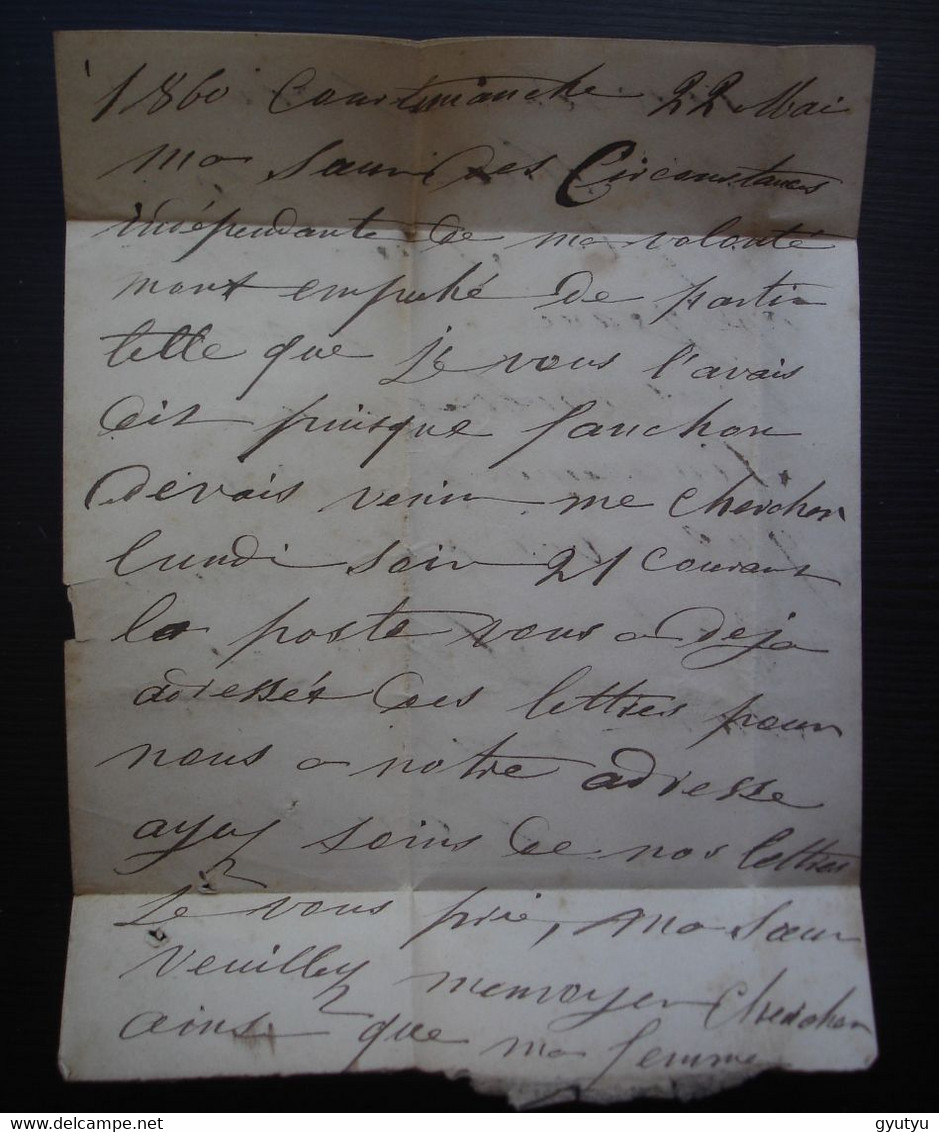 1860 Courtemanche 22 Mai
ma Sœur des Circonstances
indépendante de ma volonté
mont empeché de partir
telle que Je vous l'avais
dit puisque fanchon
devais venir me chercher
lundi soir 21 courant
la poste vous a deja
adressés des lettres pour
nous a notre adresse
ayez soins de nos lettres
Je vous prie, Ma Sœur
veuillez menvoyer chercher
ainsi que ma femme
gyutyu